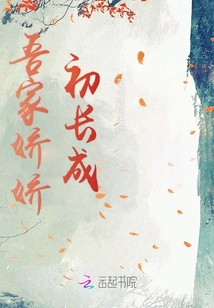 吾家娇娇
初长成
云起书院